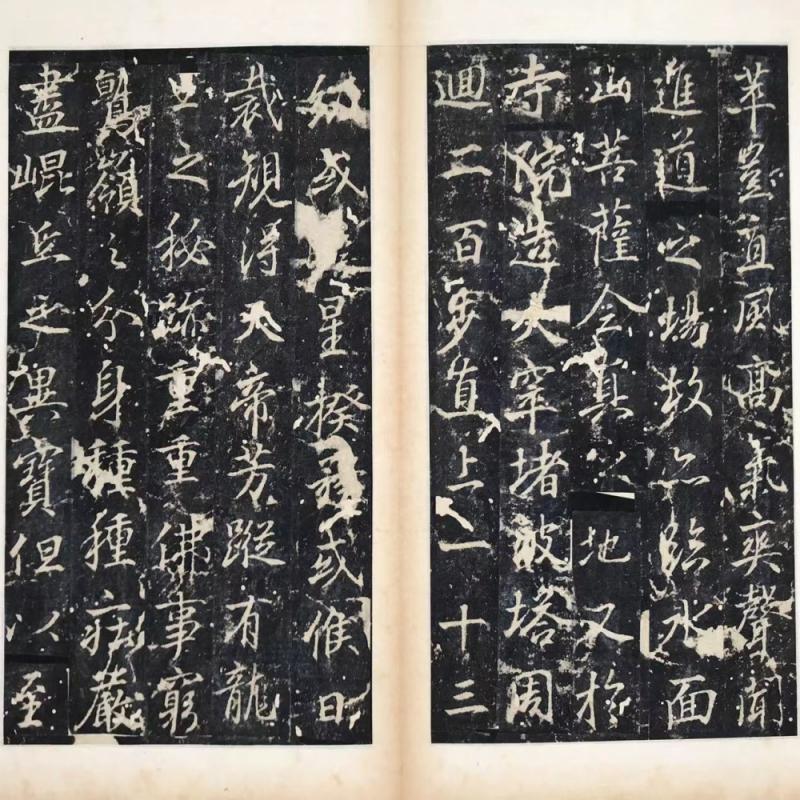 萃豈直風高氣爽聲聞
進道之場故亦臨水面
山菩薩會真之地又於
寺院造大窣堵波塔周
迴二百步直上一十三
級或星揆或候日
裁規得天帝芳蹤有龍
王之秘跡重重佛事窮
鷲嶺之分身種種莊嚴
盡崐丘之異寶但以至